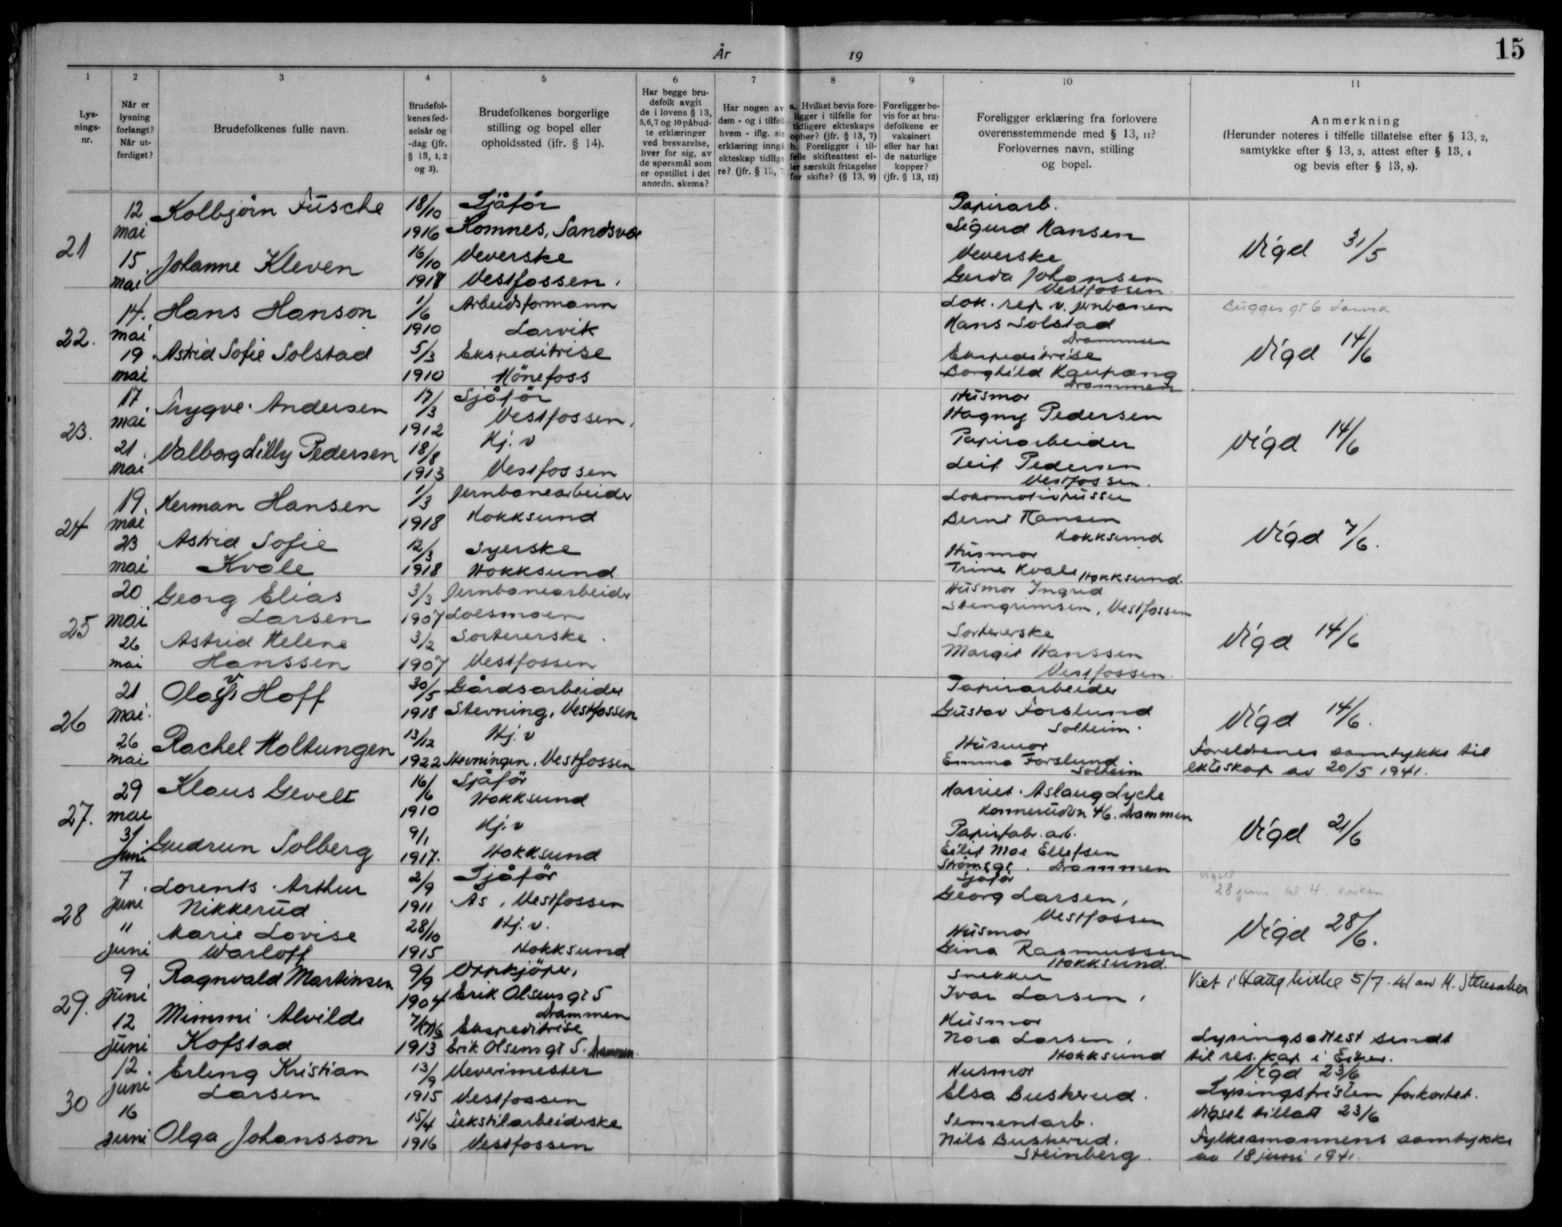 År 19
15
1 2 3 4 5 6 7 8 9 10 11
Lys-
nings-
nr.
Når er
lysning
forlangt?
Når ut-
ferdiget?
Brudefolkenes fulle navn.
Brudefol-
kenes fød-
selsår og
-dag (jfr.
§ 13, 1, 2
og 3).
Brudefolkenes borgerlige
stilling og bopel eller
opholdssted (ifr. § 14).
Har begge bru-
defolk avgit
de i lovens § 13,
5,6,7 og 10 påbud-
te erklæringer
ved besvarelse,
hver for sig, av
de spørsmål som
er opstillet i det
anordn. skema?
Har nogen av
dem - og i tilfell
hvem - iflg. sin
erklæring inngå
ekteskap tidlige
re? (jfr. § 13, 7
a. Hvilket bevis fore-
ligger i tilfelle for
tidligere ekteskaps
ophør? (jfr. § 13, 7)
b. Foreligger i til-
felle skifteattest el-
ler særskilt fritagelse
for skifte? (§ 13, 9)
Foreligger be-
vis for at bru-
defolkene er
vaksinert
eller har hat
de naturlige
kopper?
(jfr. § 13, 12)
Foreligger erklæring fra forlovere
overensstemmende med § 13, 11?
Forlovernes navn, stilling
og bopel.
Anmerkning
(Herunder noteres i tilfelle tillatelse efter § 13, 2,
samtykke efter § 13, 3, attest efter § 13, 4
og bevis efter § 13, 8).
21
12 Kolbjørn Fusche 18/10 Sjåfør Papirarb.
mai 1916 Komnes, Sandsvær Sigurd Hansen
Vigd 31/5
15 Johanne Kleven 16/10 Veverske Veverske
mai 1918 Vestfossen. Gerda Johansen
Vestfossen
22.
14. Hans Hanson 1/6 Arbeidsformann Lok. rep. v. jernbanen
mai 1910 Larvik Hans Solstad
Drammen
Vigd 14/6
19 Astrid Sofie Solstad 5/3 Ekspeditrise Ekspeditrise
mai 1910 Hönefoss Borghild Kaupang
Drammen
23.
17 Trygve Andersen 17/3 Sjåför Husmor
mai 1912 Vestfossen, Hagny Pedersen
Vigd 14/6
21. Valborg Lilly Pedersen 18/8 Hj. v Papirarbeider
mai 1913 Vestfossen Leif Pedersen
Vestfossen.
24
19. Herman Hansen 1/3 Jernbanearbeider
mai 1918 Hokksund Bernt Hansen
Hokksund
Vigd 7/6.
23 Astrid Sofie 12/3 Syerske Husmor
mai Kvale 1918 Hokksund Trine Kvale Hokksund.
25
20 Georg Elias 3/3 Jernbanearbeider Husmor Ingrid
mai Larsen 1907 Loesmoen Stengrimsen, Vestfossen
Vigd 14/6
26 Astrid Helene 3/2 Sortererske. Sortererske
mai Hanssen 1907 Vestfossen Margit Hanssen
Vestfossen.
26
21 Olav Hoff 30/5 Gårdsarbeider Papirarbeider
mai 1918 Stevning, Vestfossen Gustav Forslund
Solheim.
Vigd 14/6.
26 Rachel Holtungen 13/12 Hj. v Husmor
mai 1922 Stevningen, Vestfossen Emma Forslund
Solheim
Foreldrenes samtykke til
ekteskap av 20/5 1941.
27.
29 Klaus Gevelt 16/6 Sjåför Harriet Aslaug Lyche
mai 1910 Hokksund Konnerudvn 46. Drammen
Vigd 21/6
3/ Gudrun Solberg 9/1 Hj. v Papirfabr. arb.
juni 1917. Hokksund Eilif Moe Ellefsen
Strömsgt. Drammen
28
7. Lorents Arthur 2/9 Sjåför Sjåför
juni Nikkerud 1911 Ås, Vestfossen Georg Larsen,
Vestfossen
Vigsel
28 juni kl 4
Vigd 28/6.
" Marie Lovise 28/10 Hj. v. Husmor
juni Warloff 1915 Hokksund Gina Rasmussen
Hokksund
29.
9 Ragnvald Martinsen 9/9 Oppkjöper, Snekker
juni 1904 Erik Olsens gt 5 Ivar Larsen,
Drammen
Viet i Haug kirke 5/7. 41 av H.
12 Mimmi Alvilde Ekspeditrise Husmor
juni Kofstad 1913 Erik Olsens gt 5. Drammen Nora Larsen,
Hokksund
Lysingsattest sendt
til res. kap i Eiker.
30
12. Erling Kristian 13/9 Vevermester Husmor
juni Larsen 1915 Vestfossen Elsa Buskerud.
Vigd 23/6
Lysingsfristen forkortet.
Vigsel tillatt 23/6
16 Olga Johansson 15/4 Tekstilarbeiderske Sementarb.
juni 1916 Vestfossen Nils Buskerud.
Steinberg.
Fylkesmannens samtykke
av 18 juni 1941.